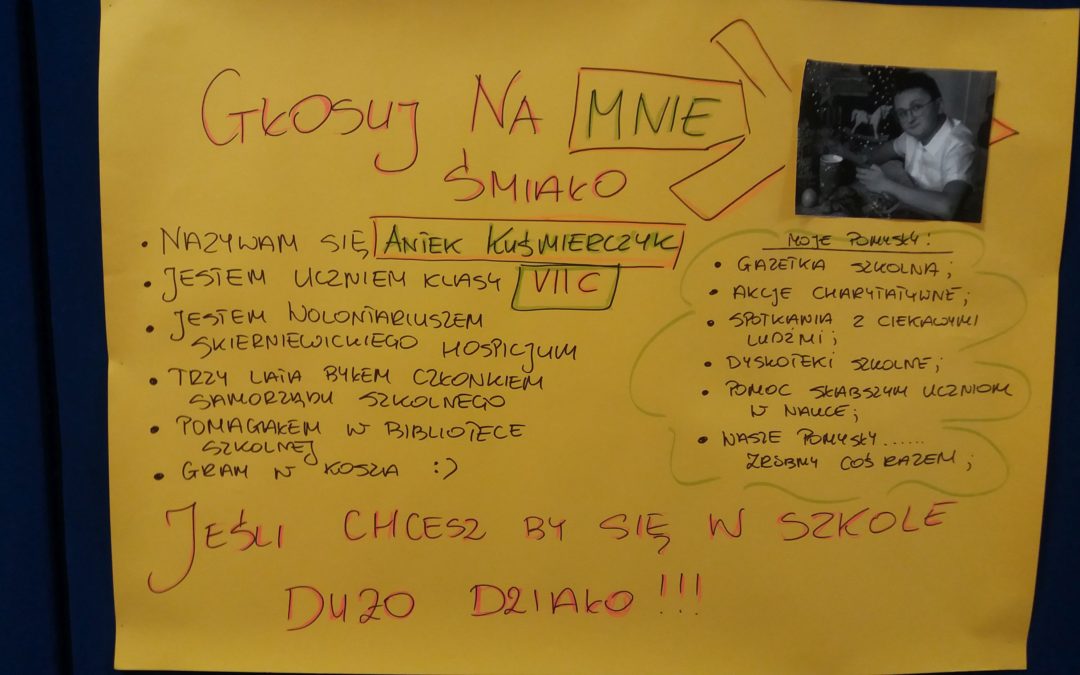 GŁOSUJ NA MNIE
ŚMIAŁO
• NAZYWAM SIĘ ANTEK KUŚMIERCZYK
• JESTEM UCZNIEM KLASY VII C
• JESTEM WOLONTARIUSZEM
SKIERNIEWICKIEGO HOSPICJUM
• TRZY LATA BYŁEM CZŁONKIEM
SAMORZĄDU SZKOLNEGO
• POMAGAŁEM W BIBLIOTECE
SZKOLNEJ
• GRAM W KOSZA :)
MOJE POMYSŁY:
• GAZETKA SZKOLNA;
• AKCJE CHARYTATYWNE;
• SPOTKANIA Z CIEKAWYMI
LUDŹMI;
• DYSKOTEKI SZKOLNE;
• POMOC SŁABSZYM UCZNIOM
W NAUCE;
• NASZE POMYSŁY......
ZRÓBMY COŚ RAZEM;
JEŚLI CHCESZ BY SIĘ W SZKOLE
DUŻO DZIAŁO!!!